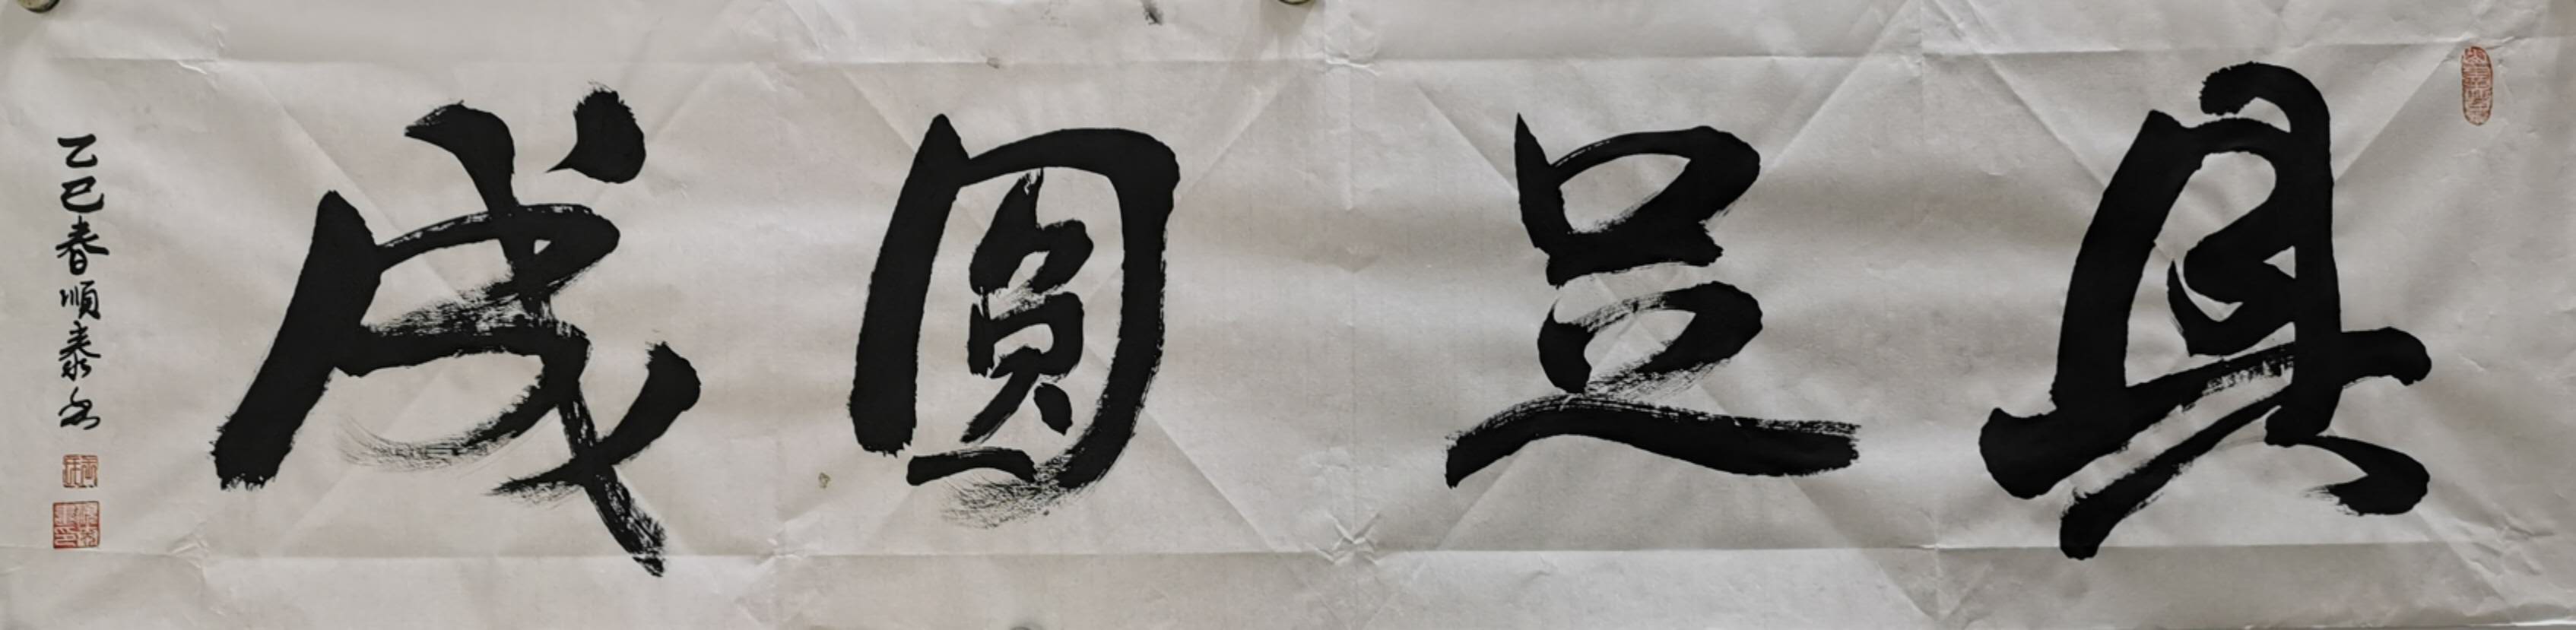 具足圓成
乙巳春順泰书